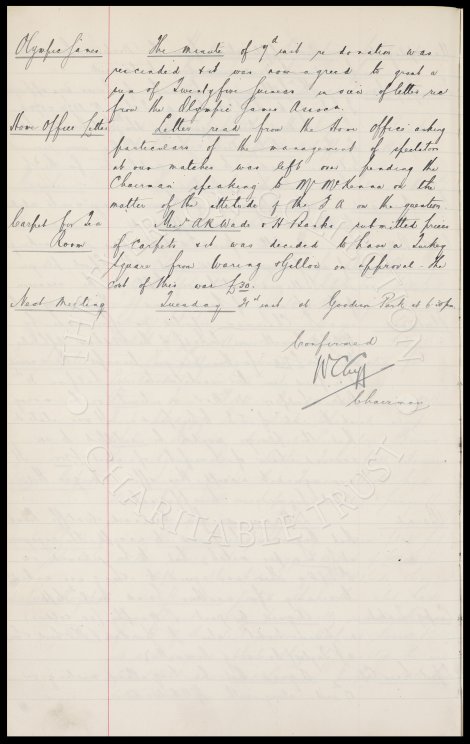 Olympic Games The minute of 7th inst re donation was
rescinded & it was now agreed to grant a
sum of Twentyfive Guineas in view of letter rec
from the Olympic Games Assocn.
Home Office Letter Letter read from the Home Office asking
particulars of the management of spectators
at our matches was left over pending the
Chairman speaking to Mr McKenna on the
matter of the attitude of the F A on the question.
Carpet for Tea Room Messrs A R Wade & H Banks submitted prices
of carpets & it was decided to have a Turkey
Square from Waring & Gillow on approval. the
cost of this was £30.
Next Meeting Tuesday 21st inst at Goodison Park at 6.30pm.
Confirmed
W C Cuff
Chairman
CHARITABLE TRUST